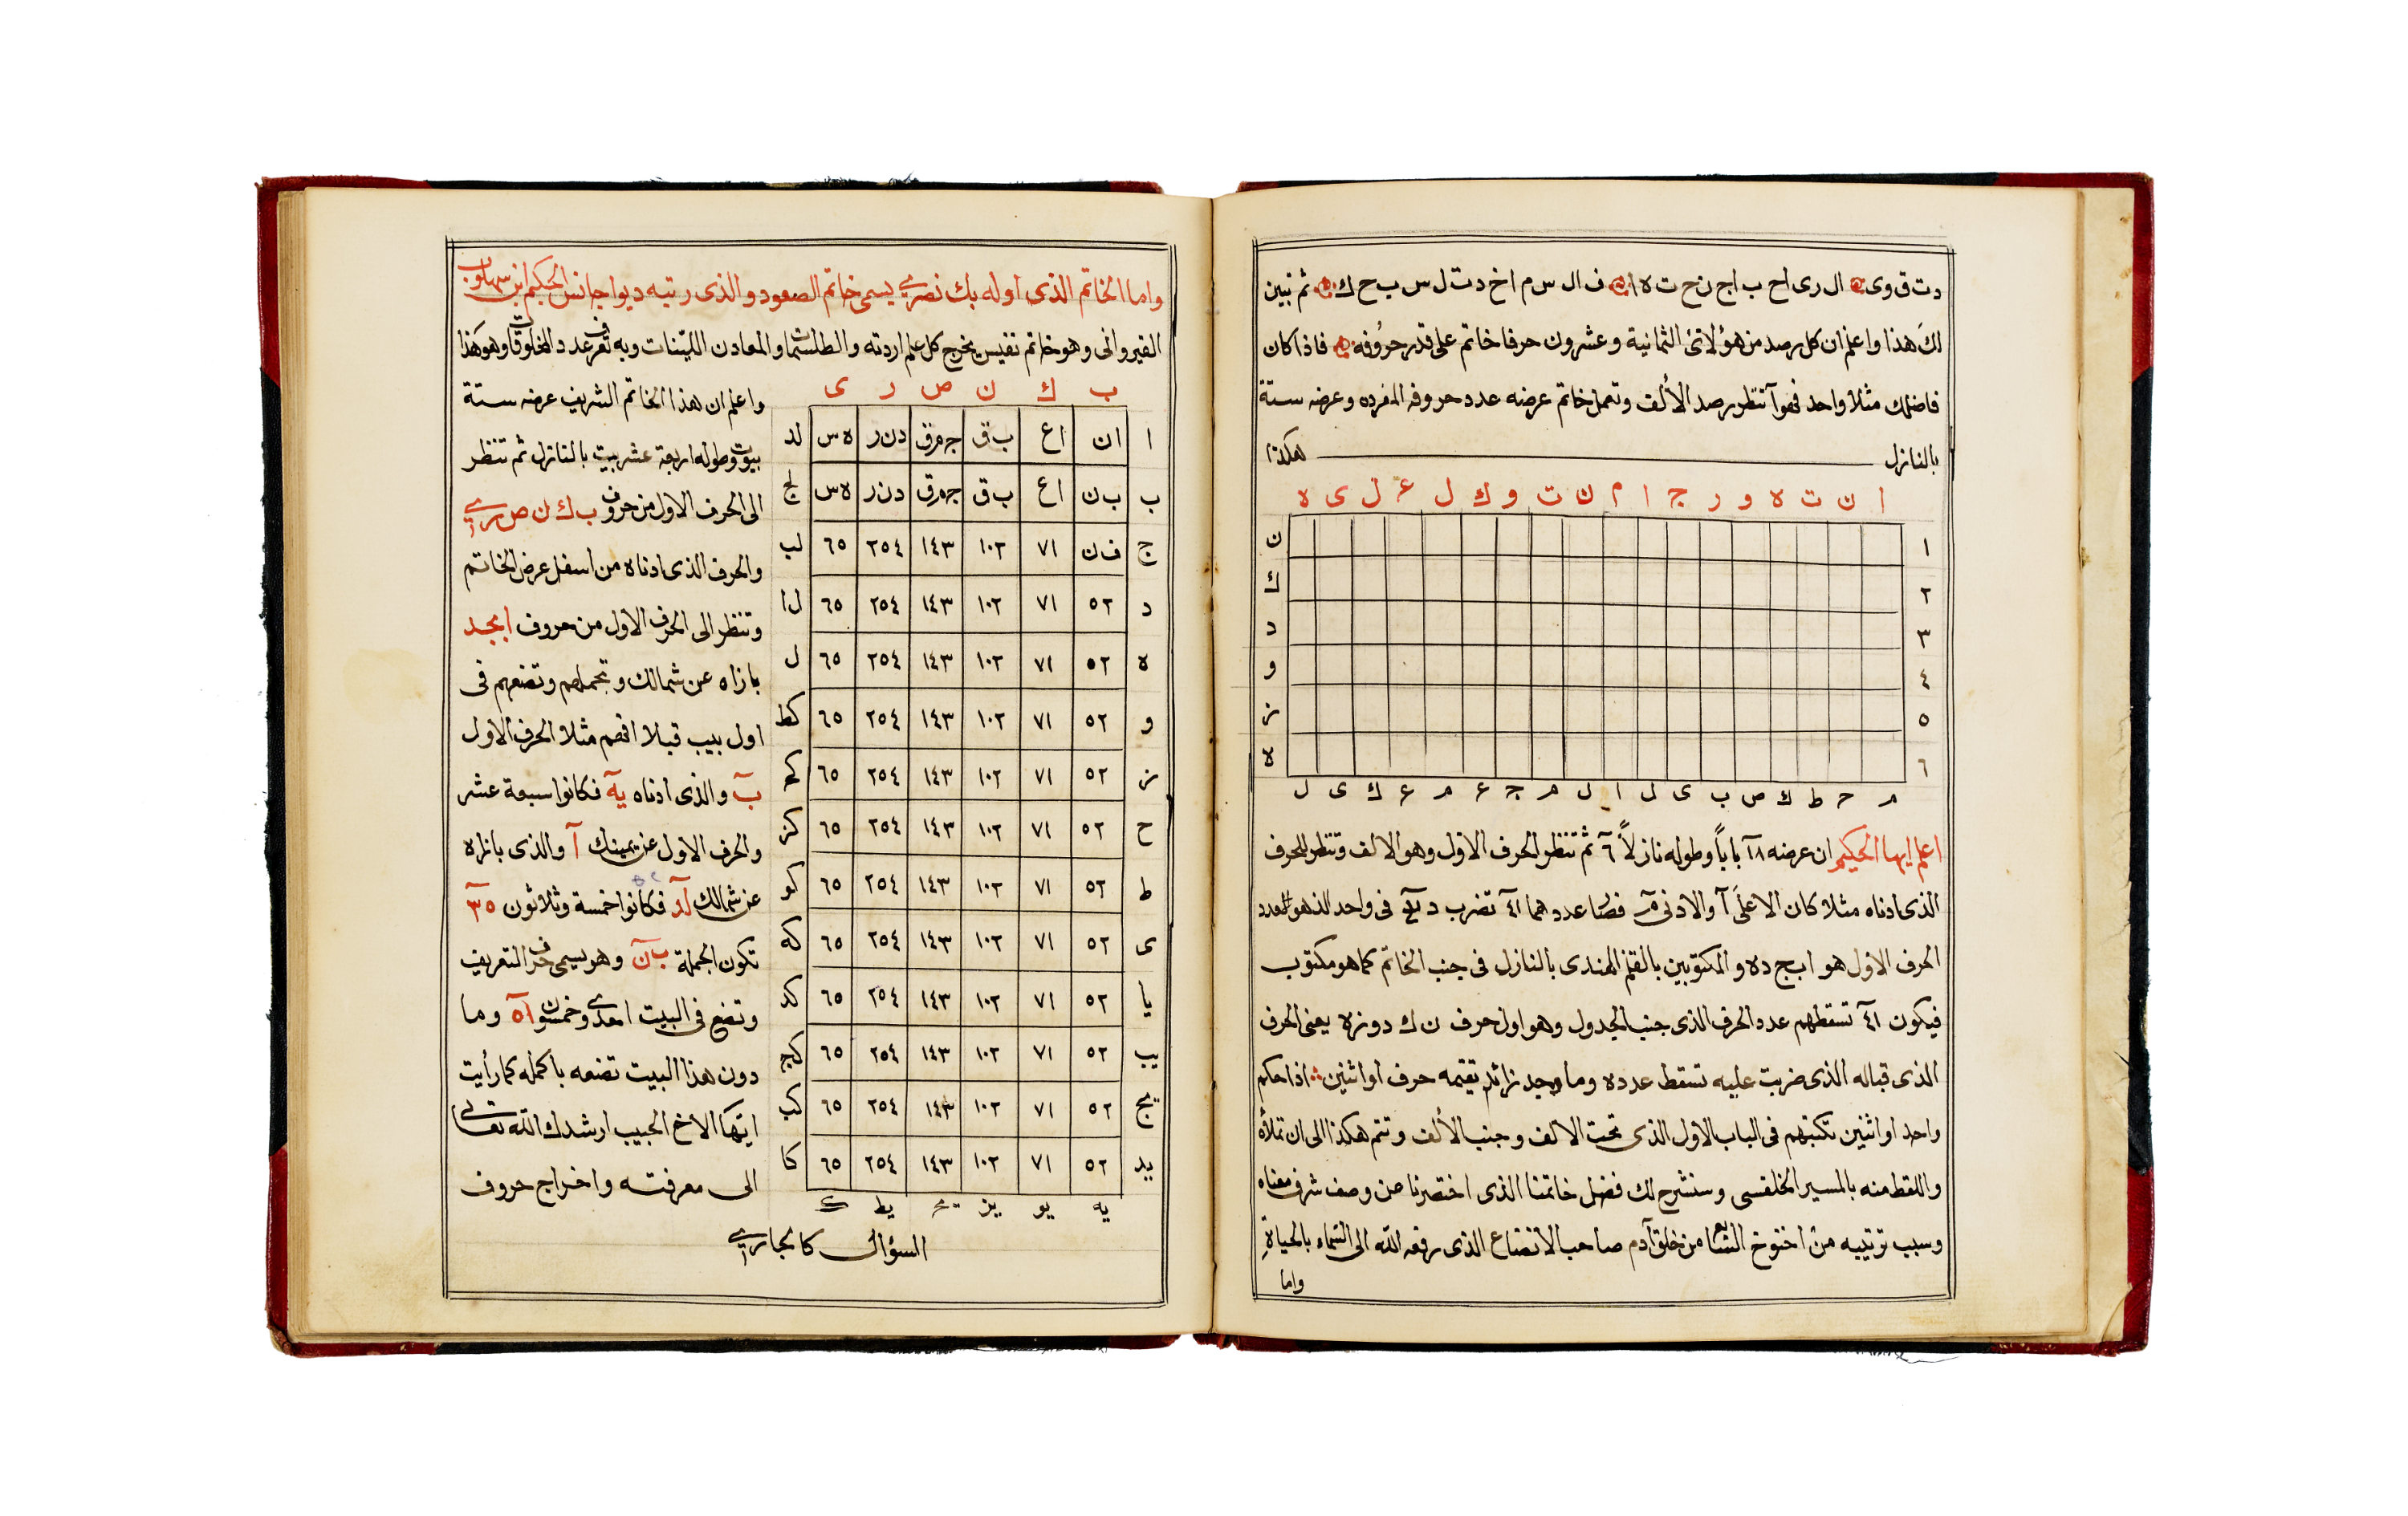 د ت ق و ى ال ر ى ا ح ب ا ج ن ح ت ه ا ف ال س م ا خ د ت ل س ب ح ك ثم نبين
لك هذا واعلم ان كل رصد من هؤلائى الثمانية وعشرون حرفا خاتم على قدر حروفه فاذا كان
فاضلك مثلا واحد فهوآ تنظر رصد الألف وتعمل خاتم عرضه عدد حروفه المفرده وعرضه ستة
بالنازل هكذا
ا ن ت ه و ر ج ا م ن ت و ك ل ع ل ى ه
١ ن
٢ ك
٣ د
٤ و
٥ ز
٦ ه
م ح ط ك ص ب ى ل ا ل م ج ع م ع ك ى ل
اعلم ايها الحكيم ان عرضه ١٨ باباً وطوله نازلاً ٦ ثم تنظر الحرف الاول وهو الالف وتنظر للحرف
الذى ادناه مثلا كان الاعلى آ والادنى م فصا عددهما ٤١ تضرب فى واحد الذهو العدد
الحرف الاول هو ابج ده والمكتوبين بالقلم الهندى بالنازل فى جنب الخاتم كما هو مكتوب
فيكون ٤١ تسقطهم عدد الحرف الذى جنب الجدول وهو اول حرف ن ك د و ز ه يعنى الحرف
الذى قباله الذى ضربت عليه تسقط عدده وما وجد زائد تقيمه حرف او اثنين اذا حكم
واحد او اثنين تكتبهم فى الباب الاول الذى تحت الالف وجنب الألف وتتم هكذا الى ان تملأه
واللقط منه بالمسير الخلفسى وسنشرح لك فضل خاتمنا الذى اختصرنا عن وصف شرف معناه
وسبب ترتيبه من اخنوخ السابع من خلق آدم صاحب الاتضاع الذى رفعه الله الى السماء بالحياة
واما
واما الخاتم الذى اوله بك نصرى يسمى خاتم الصعود والذى رتبه ديوا جانس الحكيم ابن سهلون
القيروانى وهو خاتم نفيس يخرج كل علم اردته والطلسمات والمعادن اللينات وبه تعرف عدد المخلوقات وهو كهذا
ب ك ن ص ر ى
ا ا ن ا ع ب ق ج م ق د ن ر ه س لد
ب ب ن ا ع ب ق ج م ق د ن ر ه س لج
ج ف ن ٧١ ١٠٢ ١٤٣ ٢٥٤ ٦٥ لب
د ٥٢ ٧١ ١٠٢ ١٤٣ ٢٥٤ ٦٥ لا
ه ٥٢ ٧١ ١٠٢ ١٤٣ ٢٥٤ ٦٥ ل
و ٥٢ ٧١ ١٠٢ ١٤٣ ٢٥٤ ٦٥ كط
ز ٥٢ ٧١ ١٠٢ ١٤٣ ٢٥٤ ٦٥ كح
ح ٥٢ ٧١ ١٠٢ ١٤٣ ٢٥٤ ٦٥ كز
ط ٥٢ ٧١ ١٠٢ ١٤٣ ٢٥٤ ٦٥ كو
ى ٥٢ ٧١ ١٠٢ ١٤٣ ٢٥٤ ٦٥ كه
يا ٥٢ ٧١ ١٠٢ ١٤٣ ٢٥٤ ٦٥ كد
يب ٥٢ ٧١ ١٠٢ ١٤٣ ٢٥٤ ٦٥ كج
يج ٥٢ ٧١ ١٠٢ ١٤٣ ٢٥٤ ٦٥ كب
يد ٥٢ ٧١ ١٠٢ ١٤٣ ٢٥٤ ٦٥ كا
يه يو يز يح يط ك
واعلم ان هذا الخاتم الشريف عرضه ستة
بيوت وطوله اربعة عشر بيت بالنازل ثم تنظر
الى الحرف الاول من حروف ب ك ن ص رى
والحرف الذى ادناه من اسفل عرض الخاتم
وتنظر الى الحرف الاول من حروف ابجد
بازاه عن شمالك وتجملهم وتضعهم فى
اول بيب قبلا افهم مثلا الحرف الاول
ب والذى ادناه يه فكانوا سبعة عشر
والحرف الاول عن يمينك آ والذى بازاه
عن شمالك لد فكانوا خمسة وثلاثون ٣٥
تكون الجملة ب ن وهو يسمى حرف التعريف
وتضع فى البيت احدى وخمسون ٥١ وما
دون هذا البيت تضعه باكمله كما رأيت
ايها الاخ الحبيب ارشدك الله تعالى
الى معرفته واخراج حروف
السؤال كالجارى